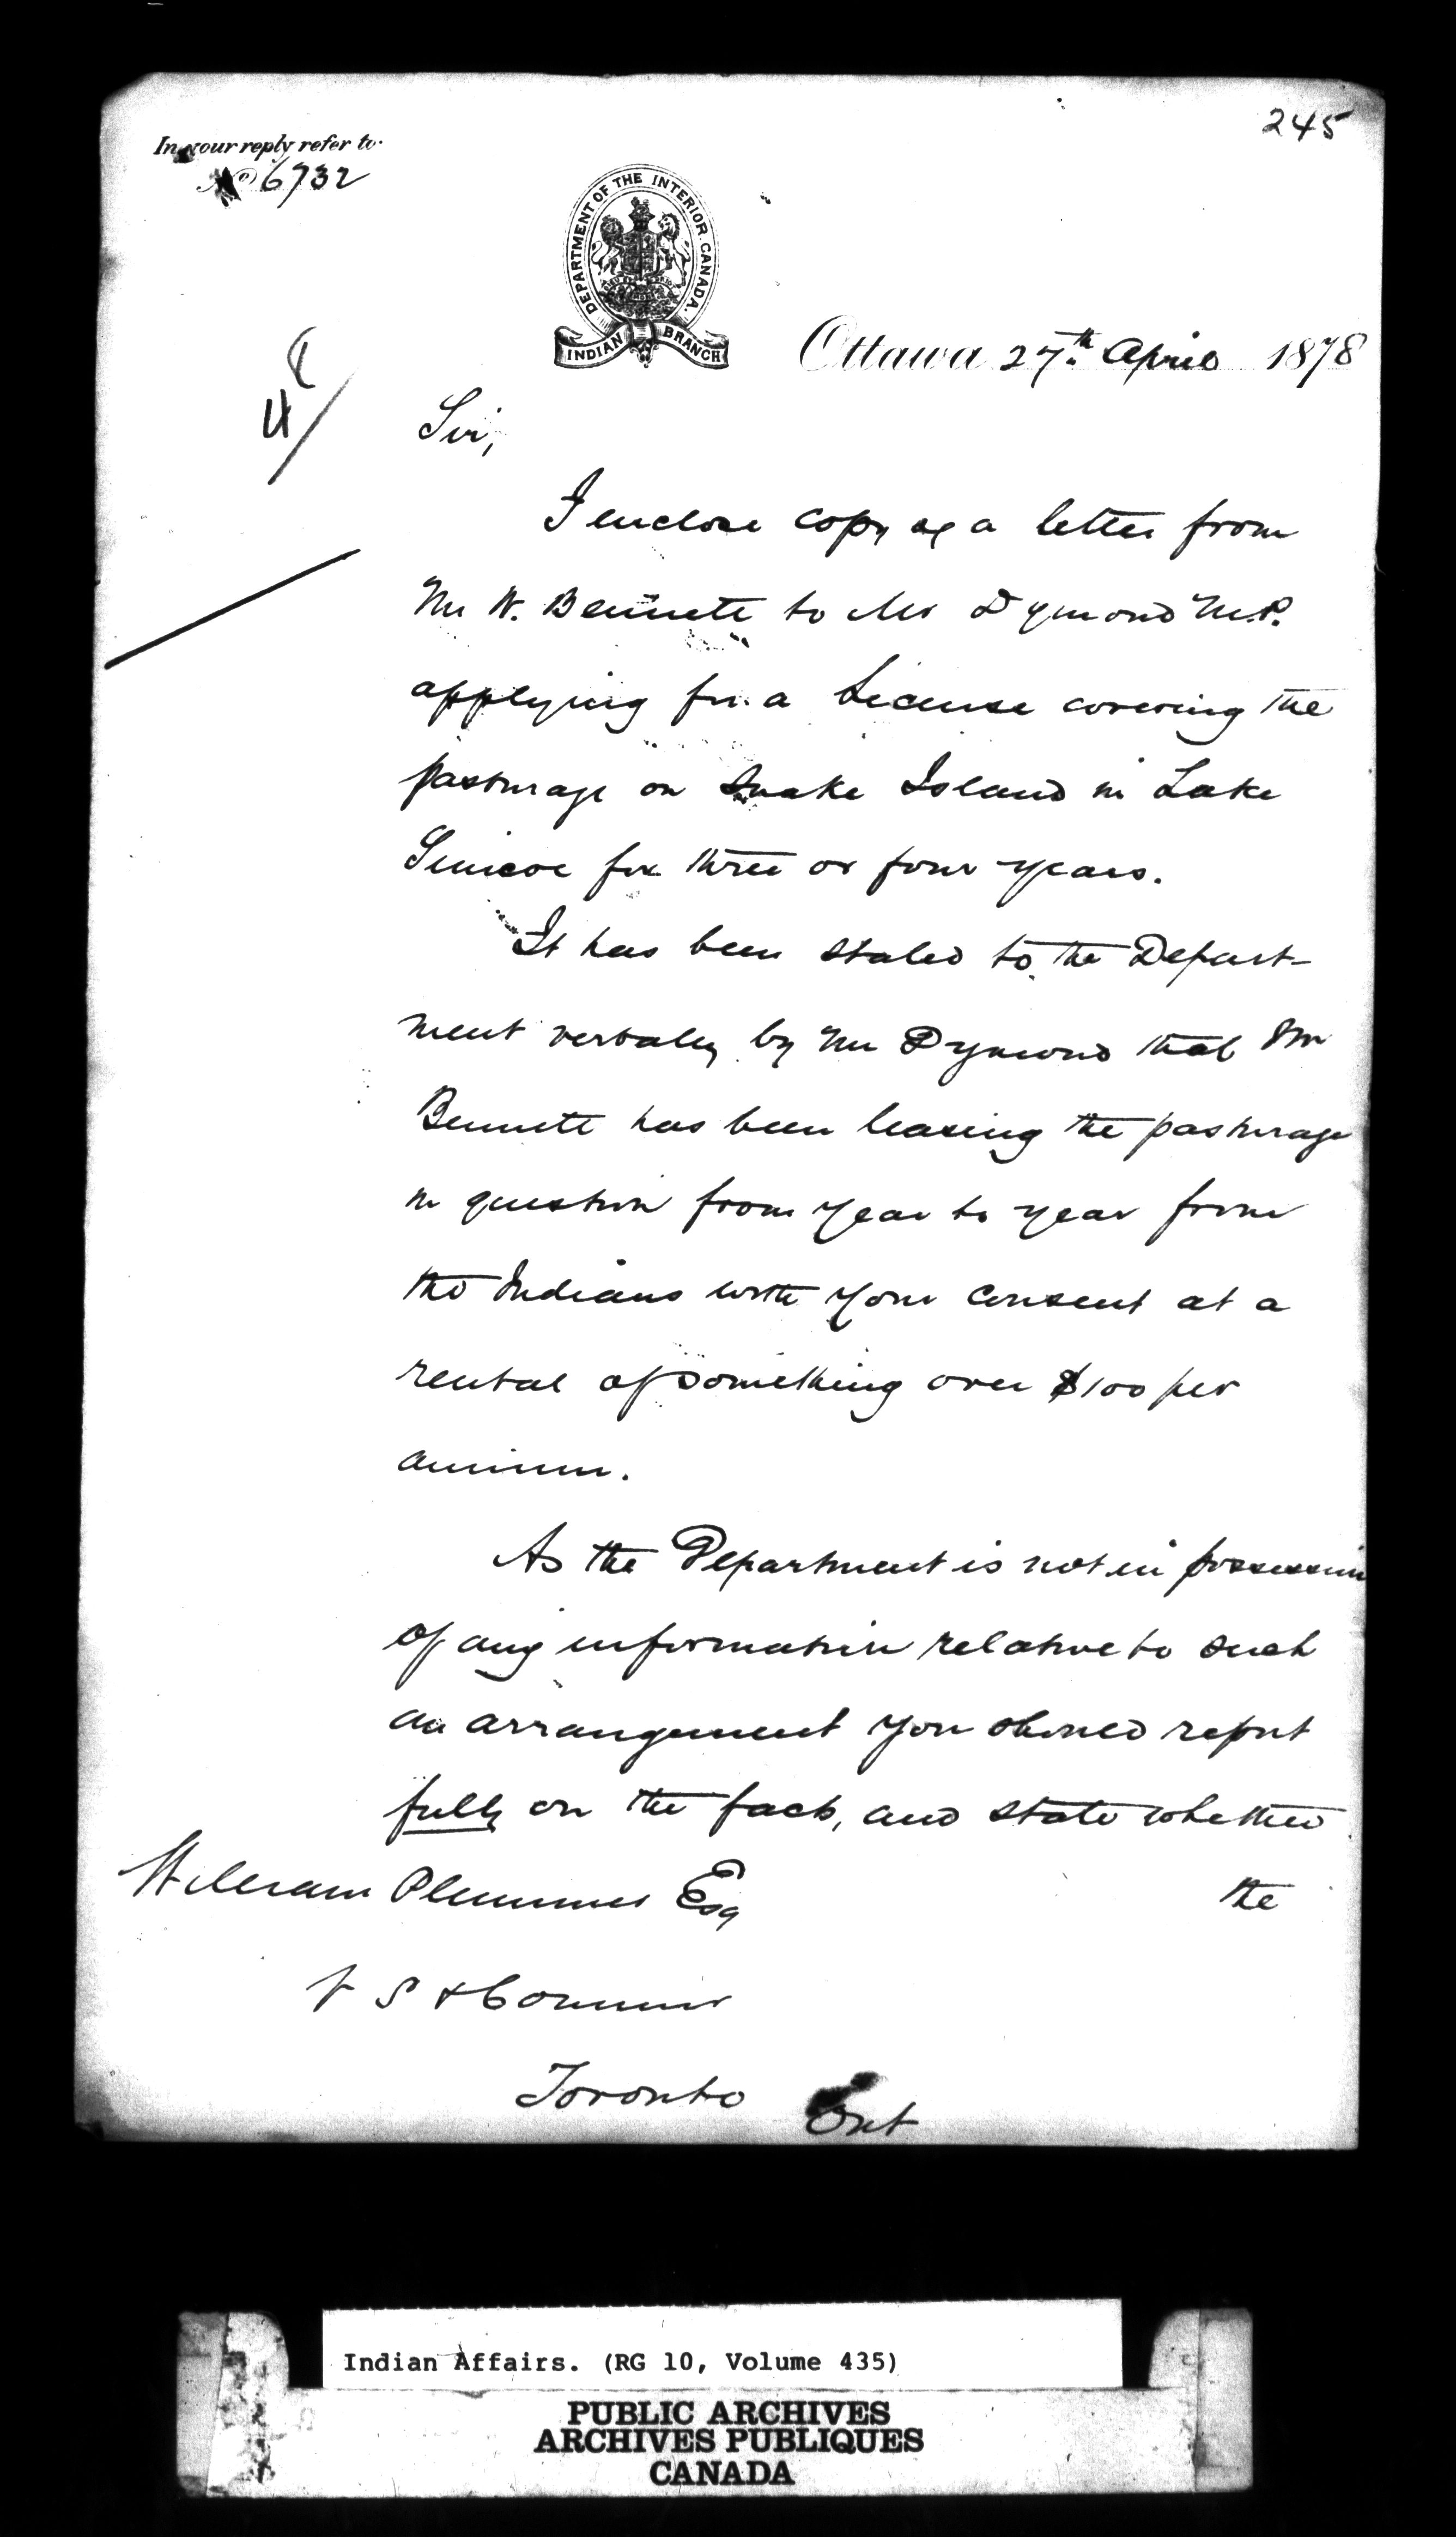 245
In your reply refer to
No 6732
DEPARTMENT OF THE INTERIOR. CANADA.
INDIAN BRANCH
Ottawa 27th. April 1878
Sir,
I enclose copy of a letter from
Mr W. Bennett to Mr Dymond M.P.
applying for a License covering the
pasturage on Snake Island in Lake
Simcoe for three or four years.
It has been stated to the Depart-
ment verbally by Mr Dymond that Mr
Bennett has been leasing the pasturage
in question from year to year from
the Indians with your consent at a
rental of something over $100 per
annum.
As the Department is not in possession
of any information relative to such
an arrangement you should report
fully on the facts, and state whether
the
William Plummer Esq
V S & Commr
Toronto Ont
Indian Affairs. (RG 10, Volume 435)
PUBLIC ARCHIVES
ARCHIVES PUBLIQUES
CANADA